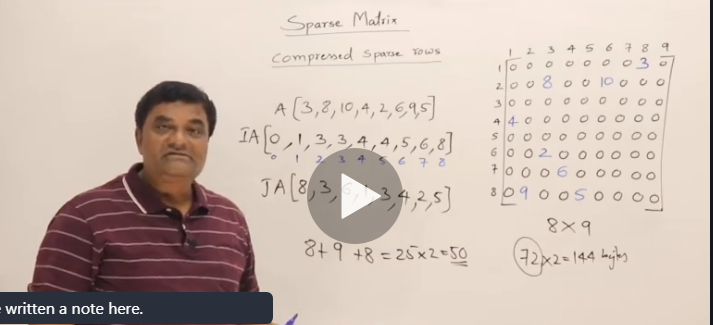 Sparse Matrix
Compressed Sparse rows
A [3,8,10,4,2,6,9,5]
IA[0,1,3,3,4,4,5,6,8]
0 1 2 3 4 5 6 7 8
JA[8,3,6,1,3,4,2,5]
8+9+8=25×2=50
1 2 3 4 5 6 7 8 9
1 0 0 0 0 0 0 0 3 0
2 0 0 8 0 0 10 0 0 0
3 0 0 0 0 0 0 0 0 0
4 4 0 0 0 0 0 0 0 0
5 0 0 0 0 0 0 0 0 0
6 0 0 2 0 0 0 0 0 0
7 0 0 0 6 0 0 0 0 0
8 0 9 0 0 5 0 0 0 0
8×9
72×2=144 bytes
written a note here.